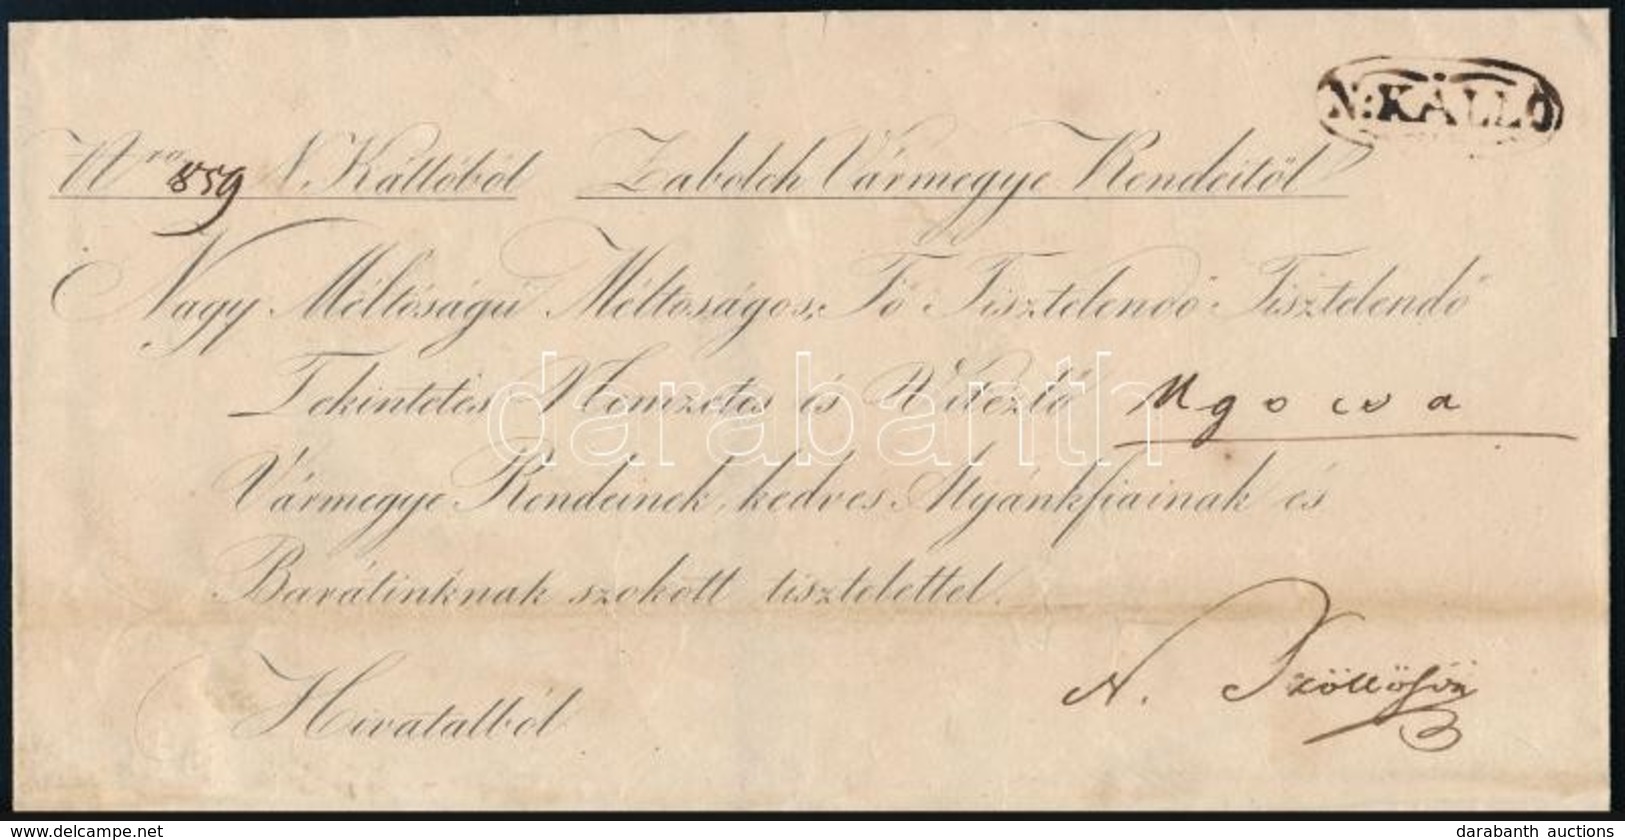 N: KÁLLÓ
Nro 859 N. Kállóból Zabolch Vármegye Rendeitől
Nagy Méltóságú Méltoságos, Fő Tisztelendő Tisztelendő
Tekintetes Nemzetes és Vitézlő Ugocsa
Vármegye Rendeinek, kedves Atyánkfiainak és
Barátinknak szokott tisztelettel.
Hivatalból
N. Szőllősön
darabanth
delcampe.net
darabanth auctions